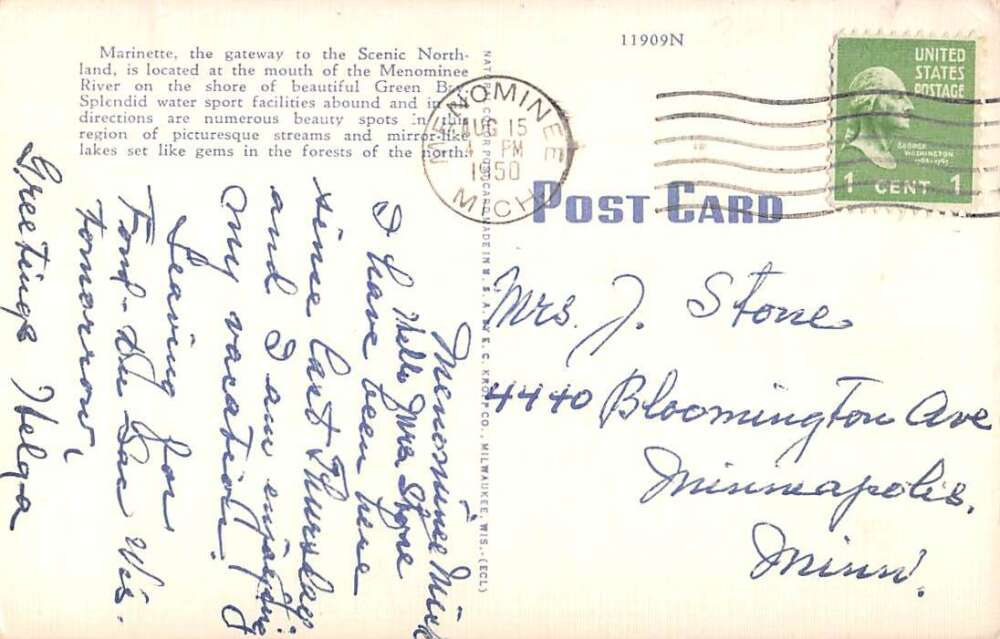 11909N
Marinette, the gateway to the Scenic North-
land, is located at the mouth of the Menominee
River on the shore of beautiful Green Bay.
Splendid water sport facilities abound and in
directions are numerous beauty spots in this
region of picturesque streams and mirror-like
lakes set like gems in the forests of the north.
MENOMINEE
AUG 15
4 PM
1950
MICH.
UNITED
STATES
POSTAGE
GEORGE
WASHINGTON
1 CENT 1
POST CARD
NATURAL COLOR POST CARD MADE IN U.S.A. BY E. C. KROPP CO., MILWAUKEE, WIS.-(ECL)
Menominee Mich
Hello Mrs Stone
I have been here
since last Thursday
and I am enjoying
my vacation.
Leaving for
Fond-du Lac Wis.
tomorrow,
Greetings Helga
Mrs. J. Stone
4440 Bloomington Ave
Minneapolis.
Minn.